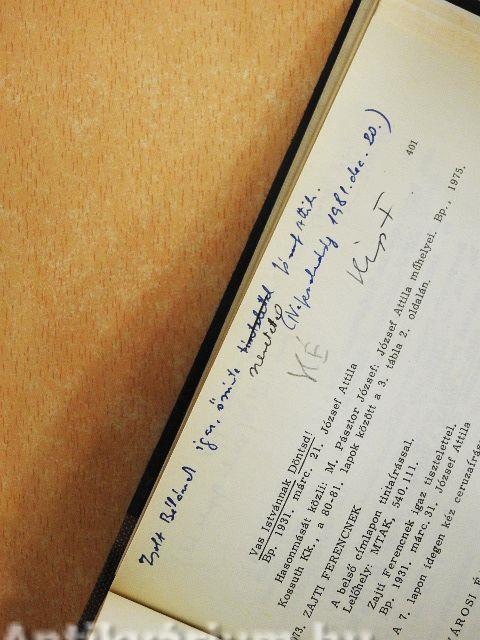 Zsolt Bélának igaz, őszinte József Attila.
(Népszabadság 1981. dec. 20.)
KÉ
Kiss F
401
Vas Istvánnak Döntsd!
Bp. 1931. márc. 21. József Attila
Hasonmását közli: M. Pásztor József: József Attila műhelyei. Bp., 1975.
Kossuth Kk., a 80-81. lapok között a 3. tábla 2. oldalán.
73. ZAJTI FERENCNEK
A belső címlapon tintaírással.
Lelőhely: MTAK, 540.111.
Zajti Ferencnek igaz tisztelettel.
Bp. 1931. márc. 31. József Attila
A 7. lapon idegen kéz ceruzaírás
VÁROSI É
Antikvárium.hu